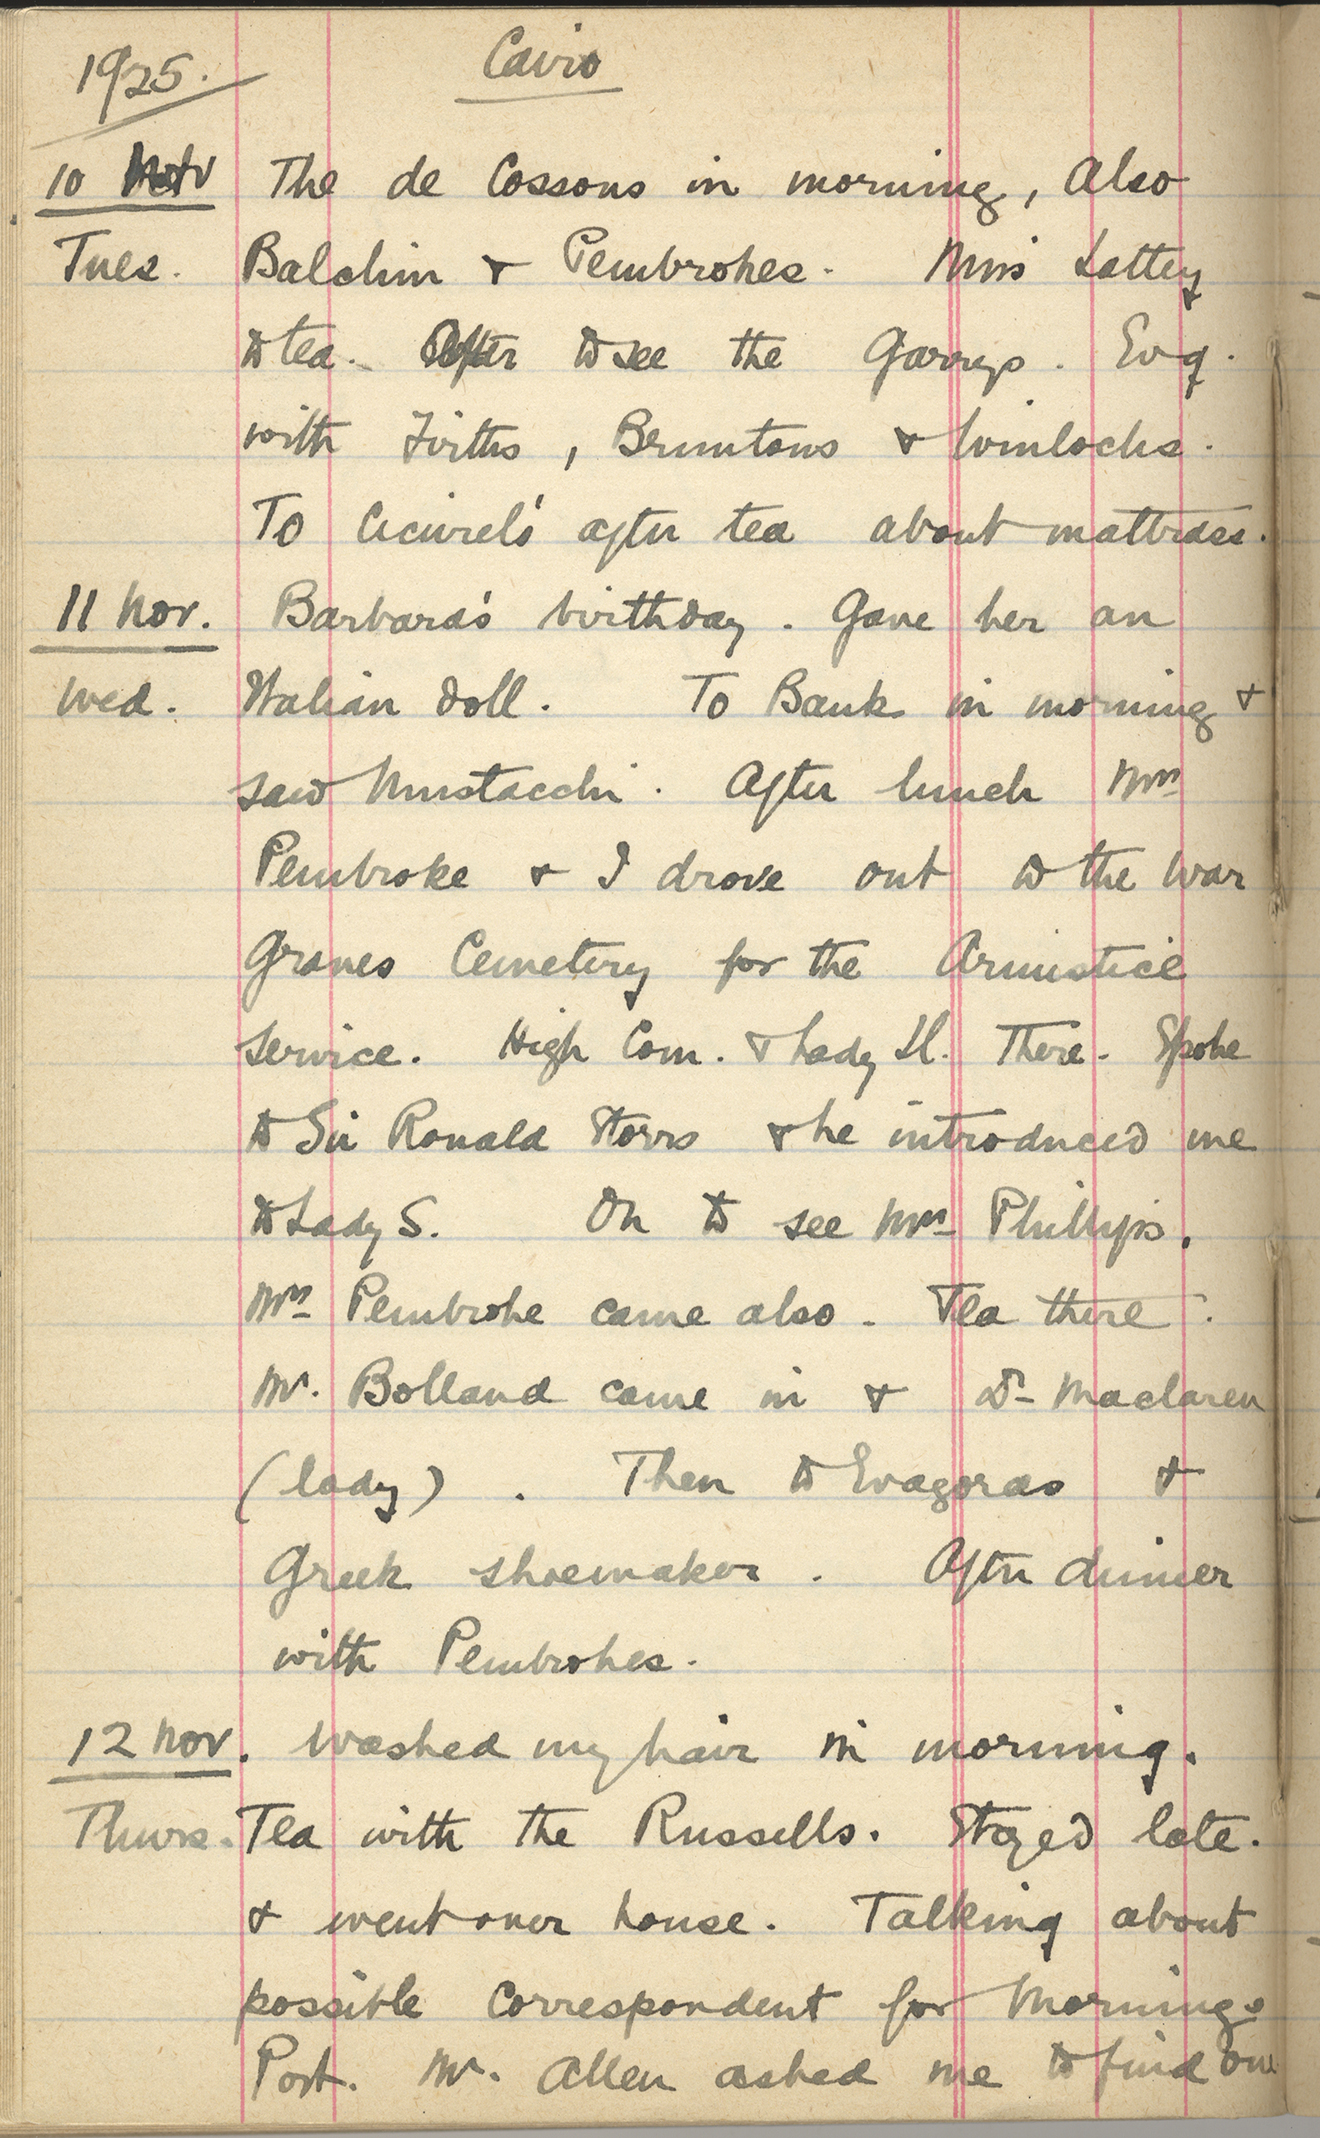 1925. Cairo
10 Nov The de Cossons in morning, Also
Tues. Balchin & Pembrokes. Miss Lattey
to tea. After to see the Garreys. Evg.
with Firths, Bruntons & Winlocks.
To Cicurel's after tea about mattrass.
11 Nov. Barbara's birthday. Gave her an
Wed. Italian doll. To Bank in morning &
saw Mustacchi. After lunch Mrs
Pembroke & I drove out to the War
Graves Cemetery for the Armistice
service. High Com. & Lady Ll. There. Spoke
to Sir Ronald Storrs & he introduced me
to Lady S. On to see Mrs Phillips.
Mrs Pembroke came also. Tea there.
Mr. Bolland came in & Dr Maclaren
(lady). Then to Evagoras &
Greek shoemaker. After dinner
with Pembrokes.
12 Nov. Washed my hair in morning.
Thurs. Tea with the Russells. Stayed late.
& went over house. Talking about
possible Correspondent for Morning
Post. Mr. Allen asked me to find one